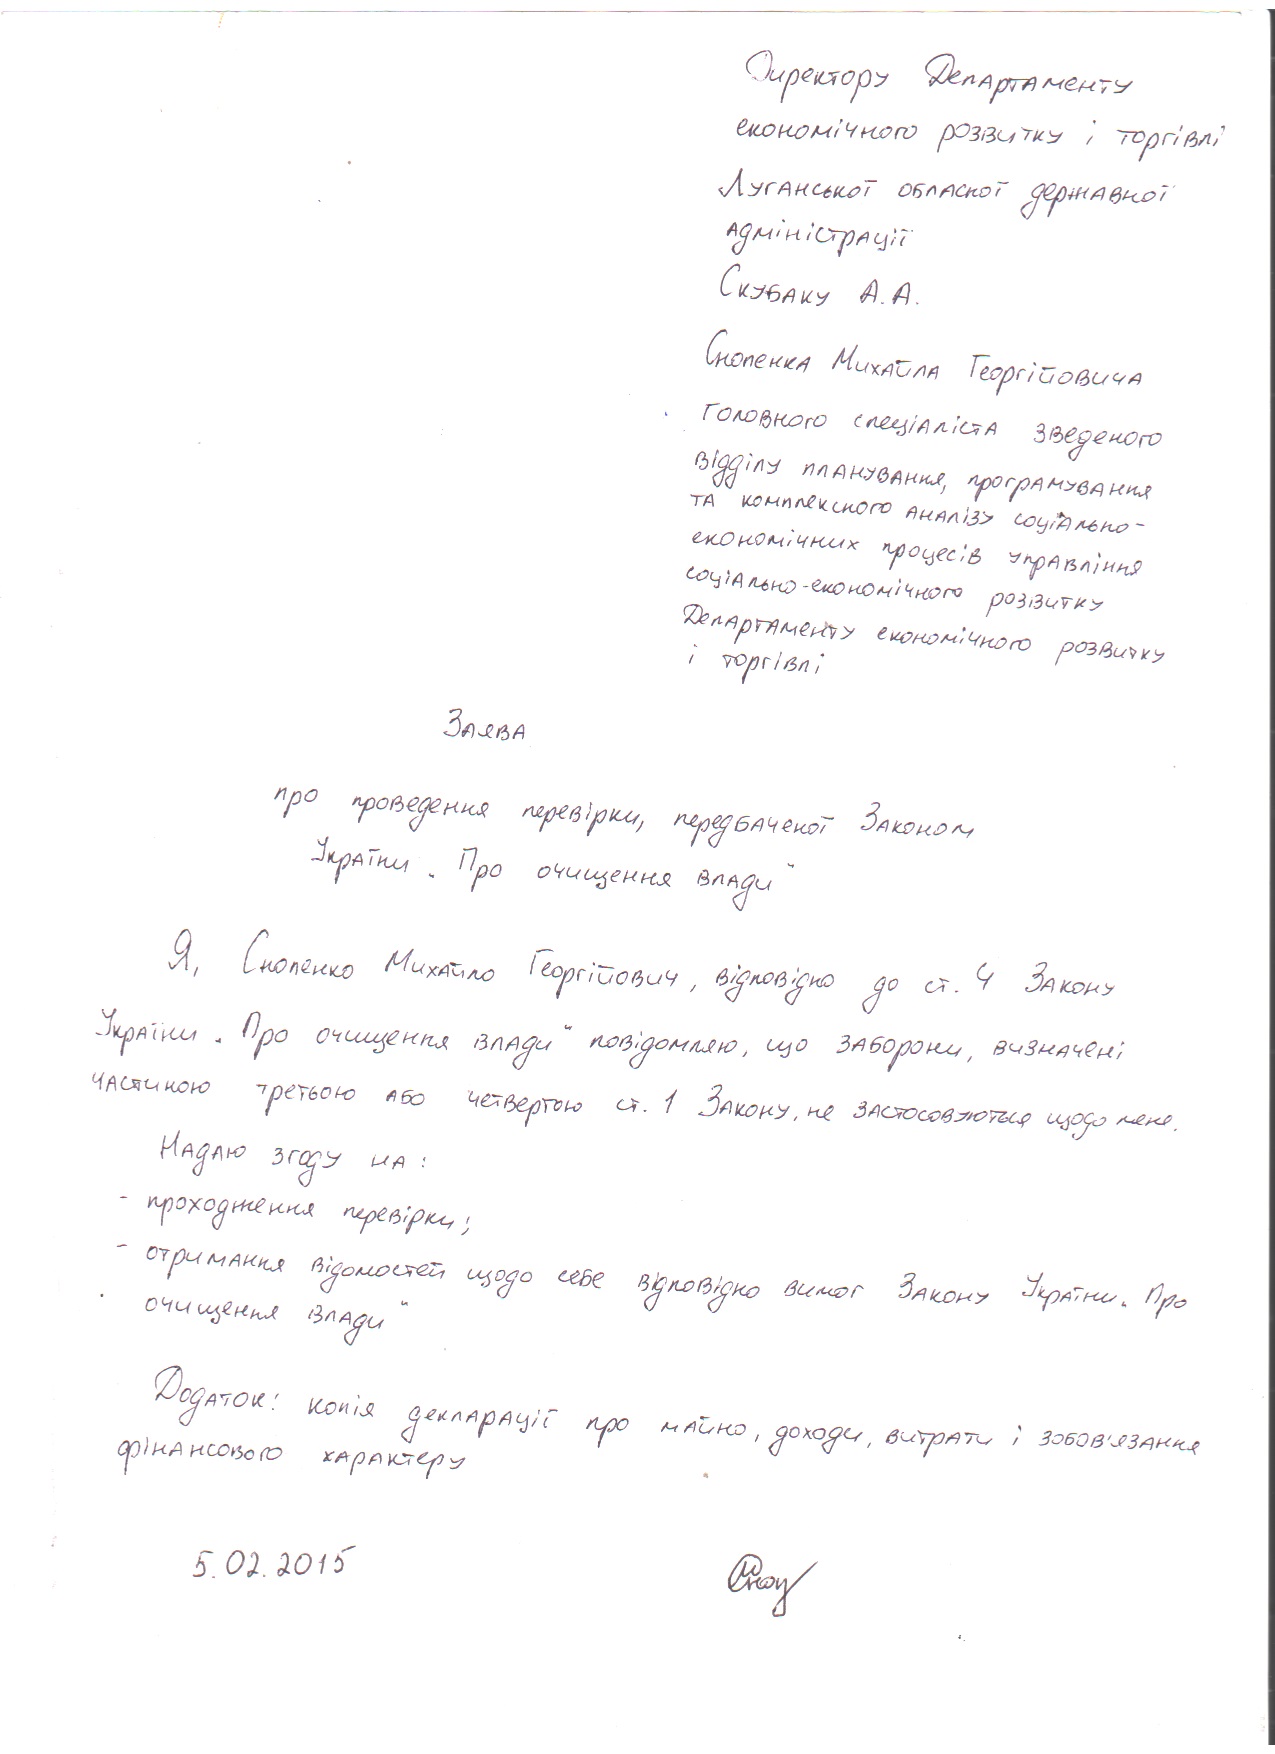 Директору Департаменту
економічного розвитку і торгівлі
Луганської обласної державної
адміністрації
Скубаку А.А.
Снопенка Михайла Георгійовича
головного спеціаліста зведеного
відділу планування, програмування
та комплексного аналізу соціально-
економічних процесів управління
соціально-економічного розвитку
Департаменту економічного розвитку
і торгівлі
Заява
про проведення перевірки, передбаченої Законом
України „Про очищення влади“
Я, Снопенко Михайло Георгійович, відповідно до ст. 4 Закону
України „Про очищення влади“ повідомляю, що заборони, визначені
частиною третьою або четвертою ст. 1 Закону, не застосовуються щодо мене.
Надаю згоду на:
- проходження перевірки;
- отримання відомостей щодо себе відповідно вимог Закону України „Про
очищення влади“
Додаток: копія декларації про майно, доходи, витрати і зобов'язання
фінансового характеру
5.02.2015